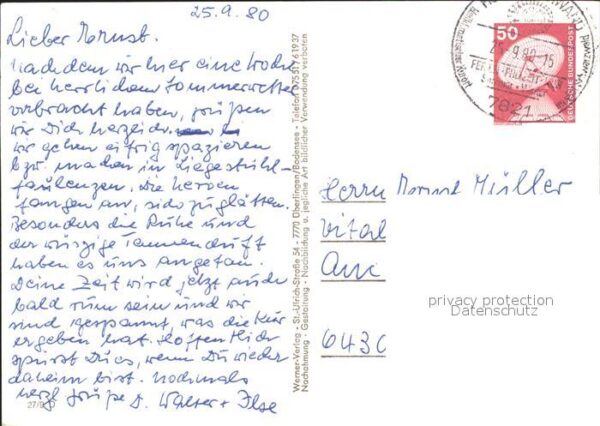 25.9.80
Lieber Horust.
Nachdem wir hier eine Woche
bei herrlichem Sommerwetter
verbracht haben, grüßen
wir Dich herzlich.
wir gehen eifrig spazieren
bzw. machen in Liegestuhl-
faulenzen. Die Nerven
fangen an, sich zu glätten.
Besonders die Ruhe und
der würzige Tannenduft
haben es uns angetan.
Deine Zeit wird jetzt auch
bald rum sein und wir
sind gespannt, was die Kur
ergeben hat. Hoffentlich
spürst Du es, wenn Du wieder
daheim bist. Nochmals
herzl. Grüße D. Walter + Ilse
27/9
Werner-Verlag - St.-Ulrich-Straße 54 - 7770 Überlingen/Bodensee - Telefon 07551/61937
Nachahmung - Gestaltung - Nachbildung u. jegliche Art bildlicher Verwendung verboten
50
DEUTSCHE BUNDESPOST
7821
Herrn Müller
Vital
Am
6430
privacy protection
Datenschutz